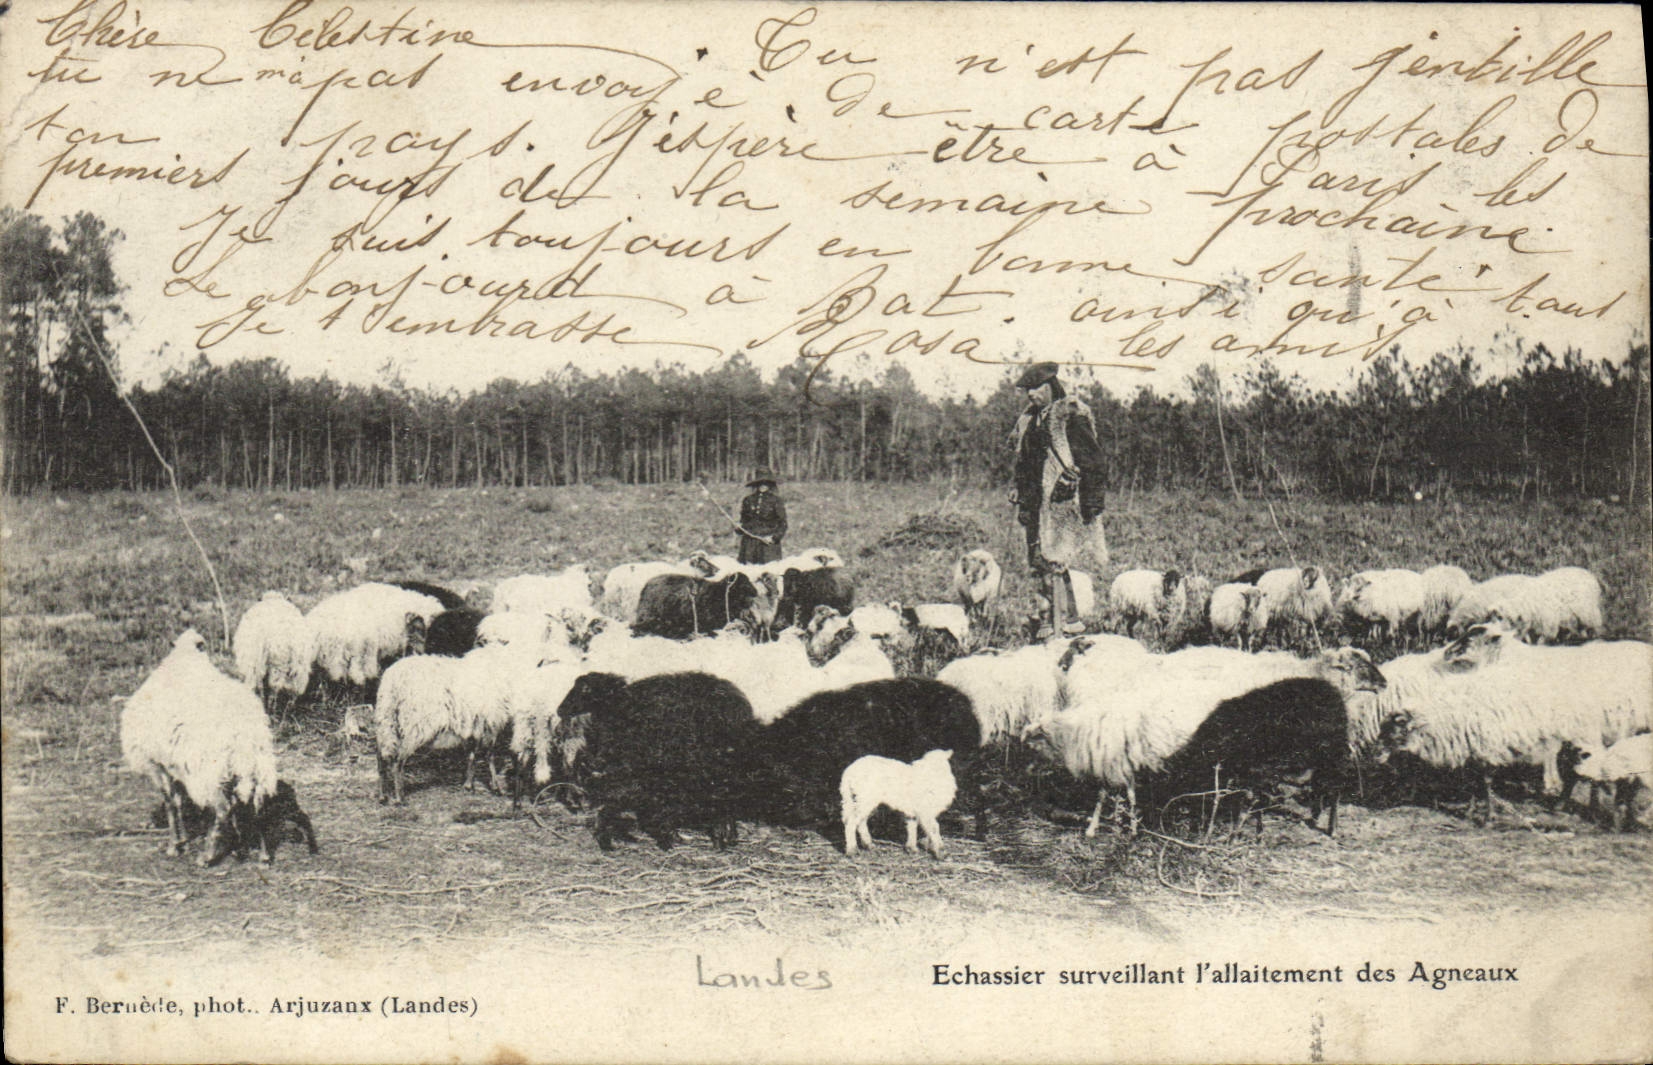 Chère Célestine. Tu n'est pas gentille
tu ne m'a pas envoyé de carte postales de
ton pays. J'éspère être à Paris les
premiers jours de la semaine prochaine
Je suis toujours en bonne santé
Le bonjourd à Bat. ainsi qu'à tout
Je t'embrasse Rosa les amis
Landes
Echassier surveillant l'allaitement des Agneaux
F. Bernède, phot.. Arjuzanx (Landes)